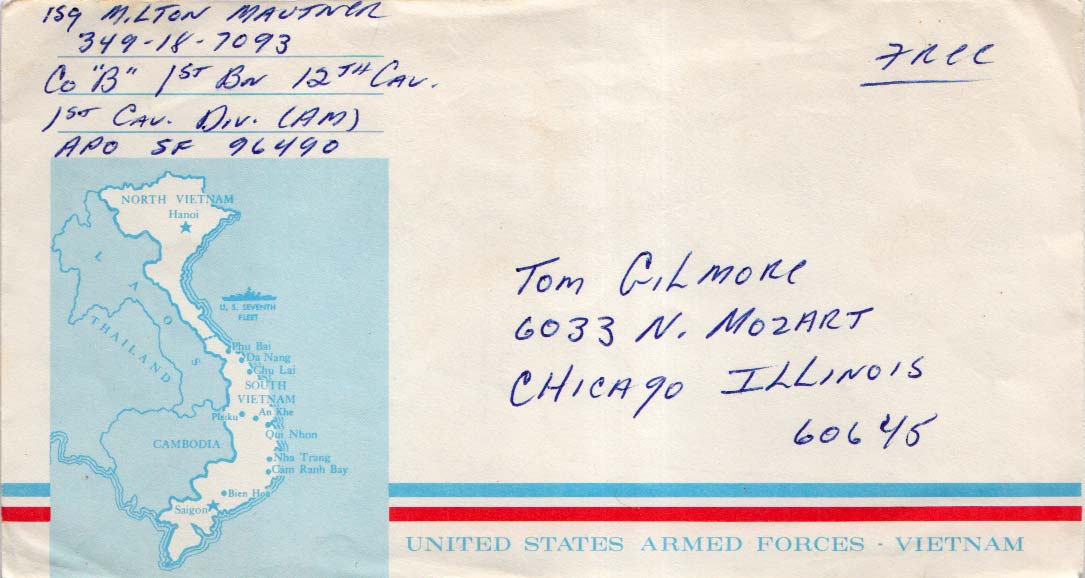 1Sg MILTON MAUTNER
349-18-7093
Co "B" 1ST BN 12TH CAV.
1ST CAV. DIV. (AM)
APO SF 96490
FREE
TOM GILMORE
6033 N. MOZART
CHICAgO ILLINOIS
60645
NORTH VIETNAM
Hanoi
LAOS
THAILAND
U. S. SEVENTH
FLEET
Phu Bai
Da Nang
Chu Lai
SOUTH
VIETNAM
Pleiku
An Khe
Qui Nhon
CAMBODIA
Nha Trang
Cam Ranh Bay
Bien Hoa
Saigon
UNITED STATES ARMED FORCES - VIETNAM